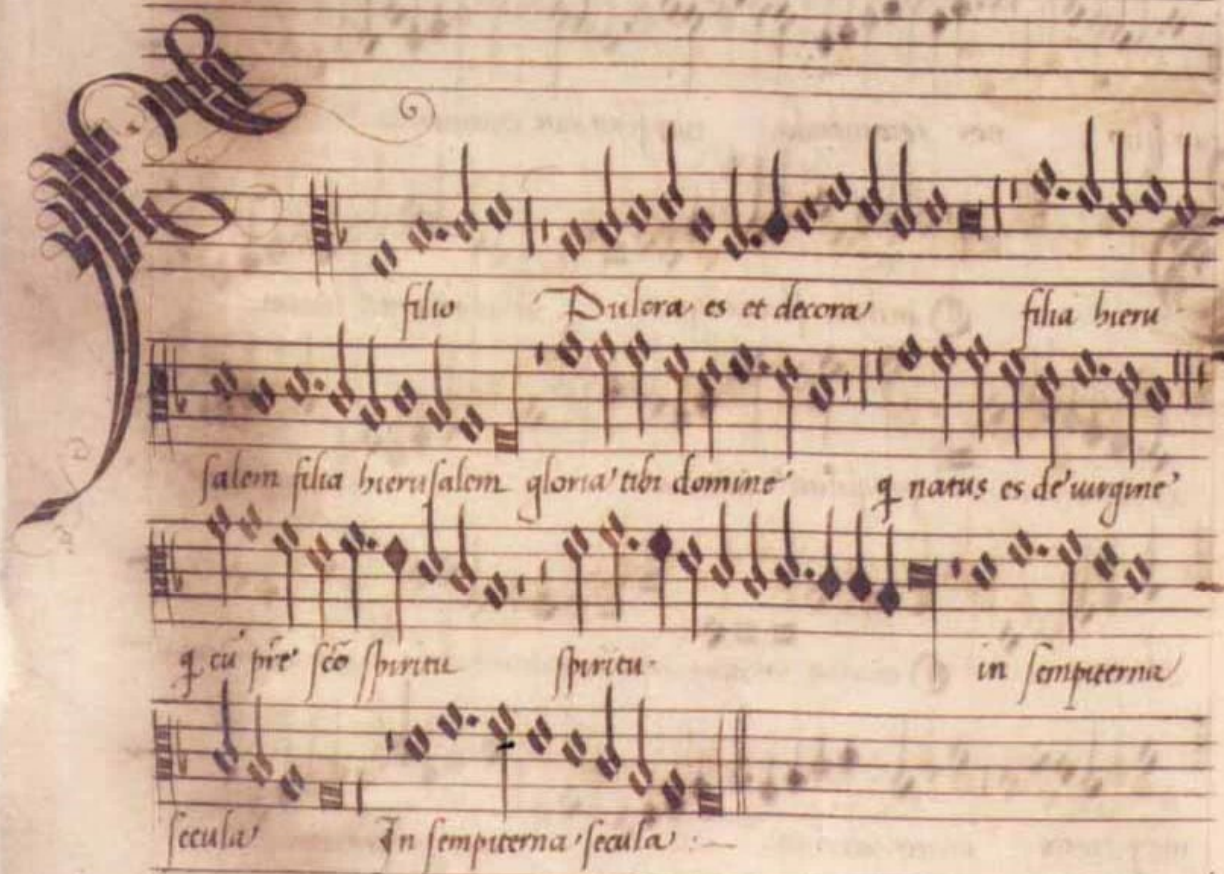 filio Pulcra es et decora filia hieru
salem filia hierusalem gloria tibi domine q natus es de virgine
q cū pr̄e sc̄o spiritu spiritu in sempiterna
secula In sempiterna secula :~